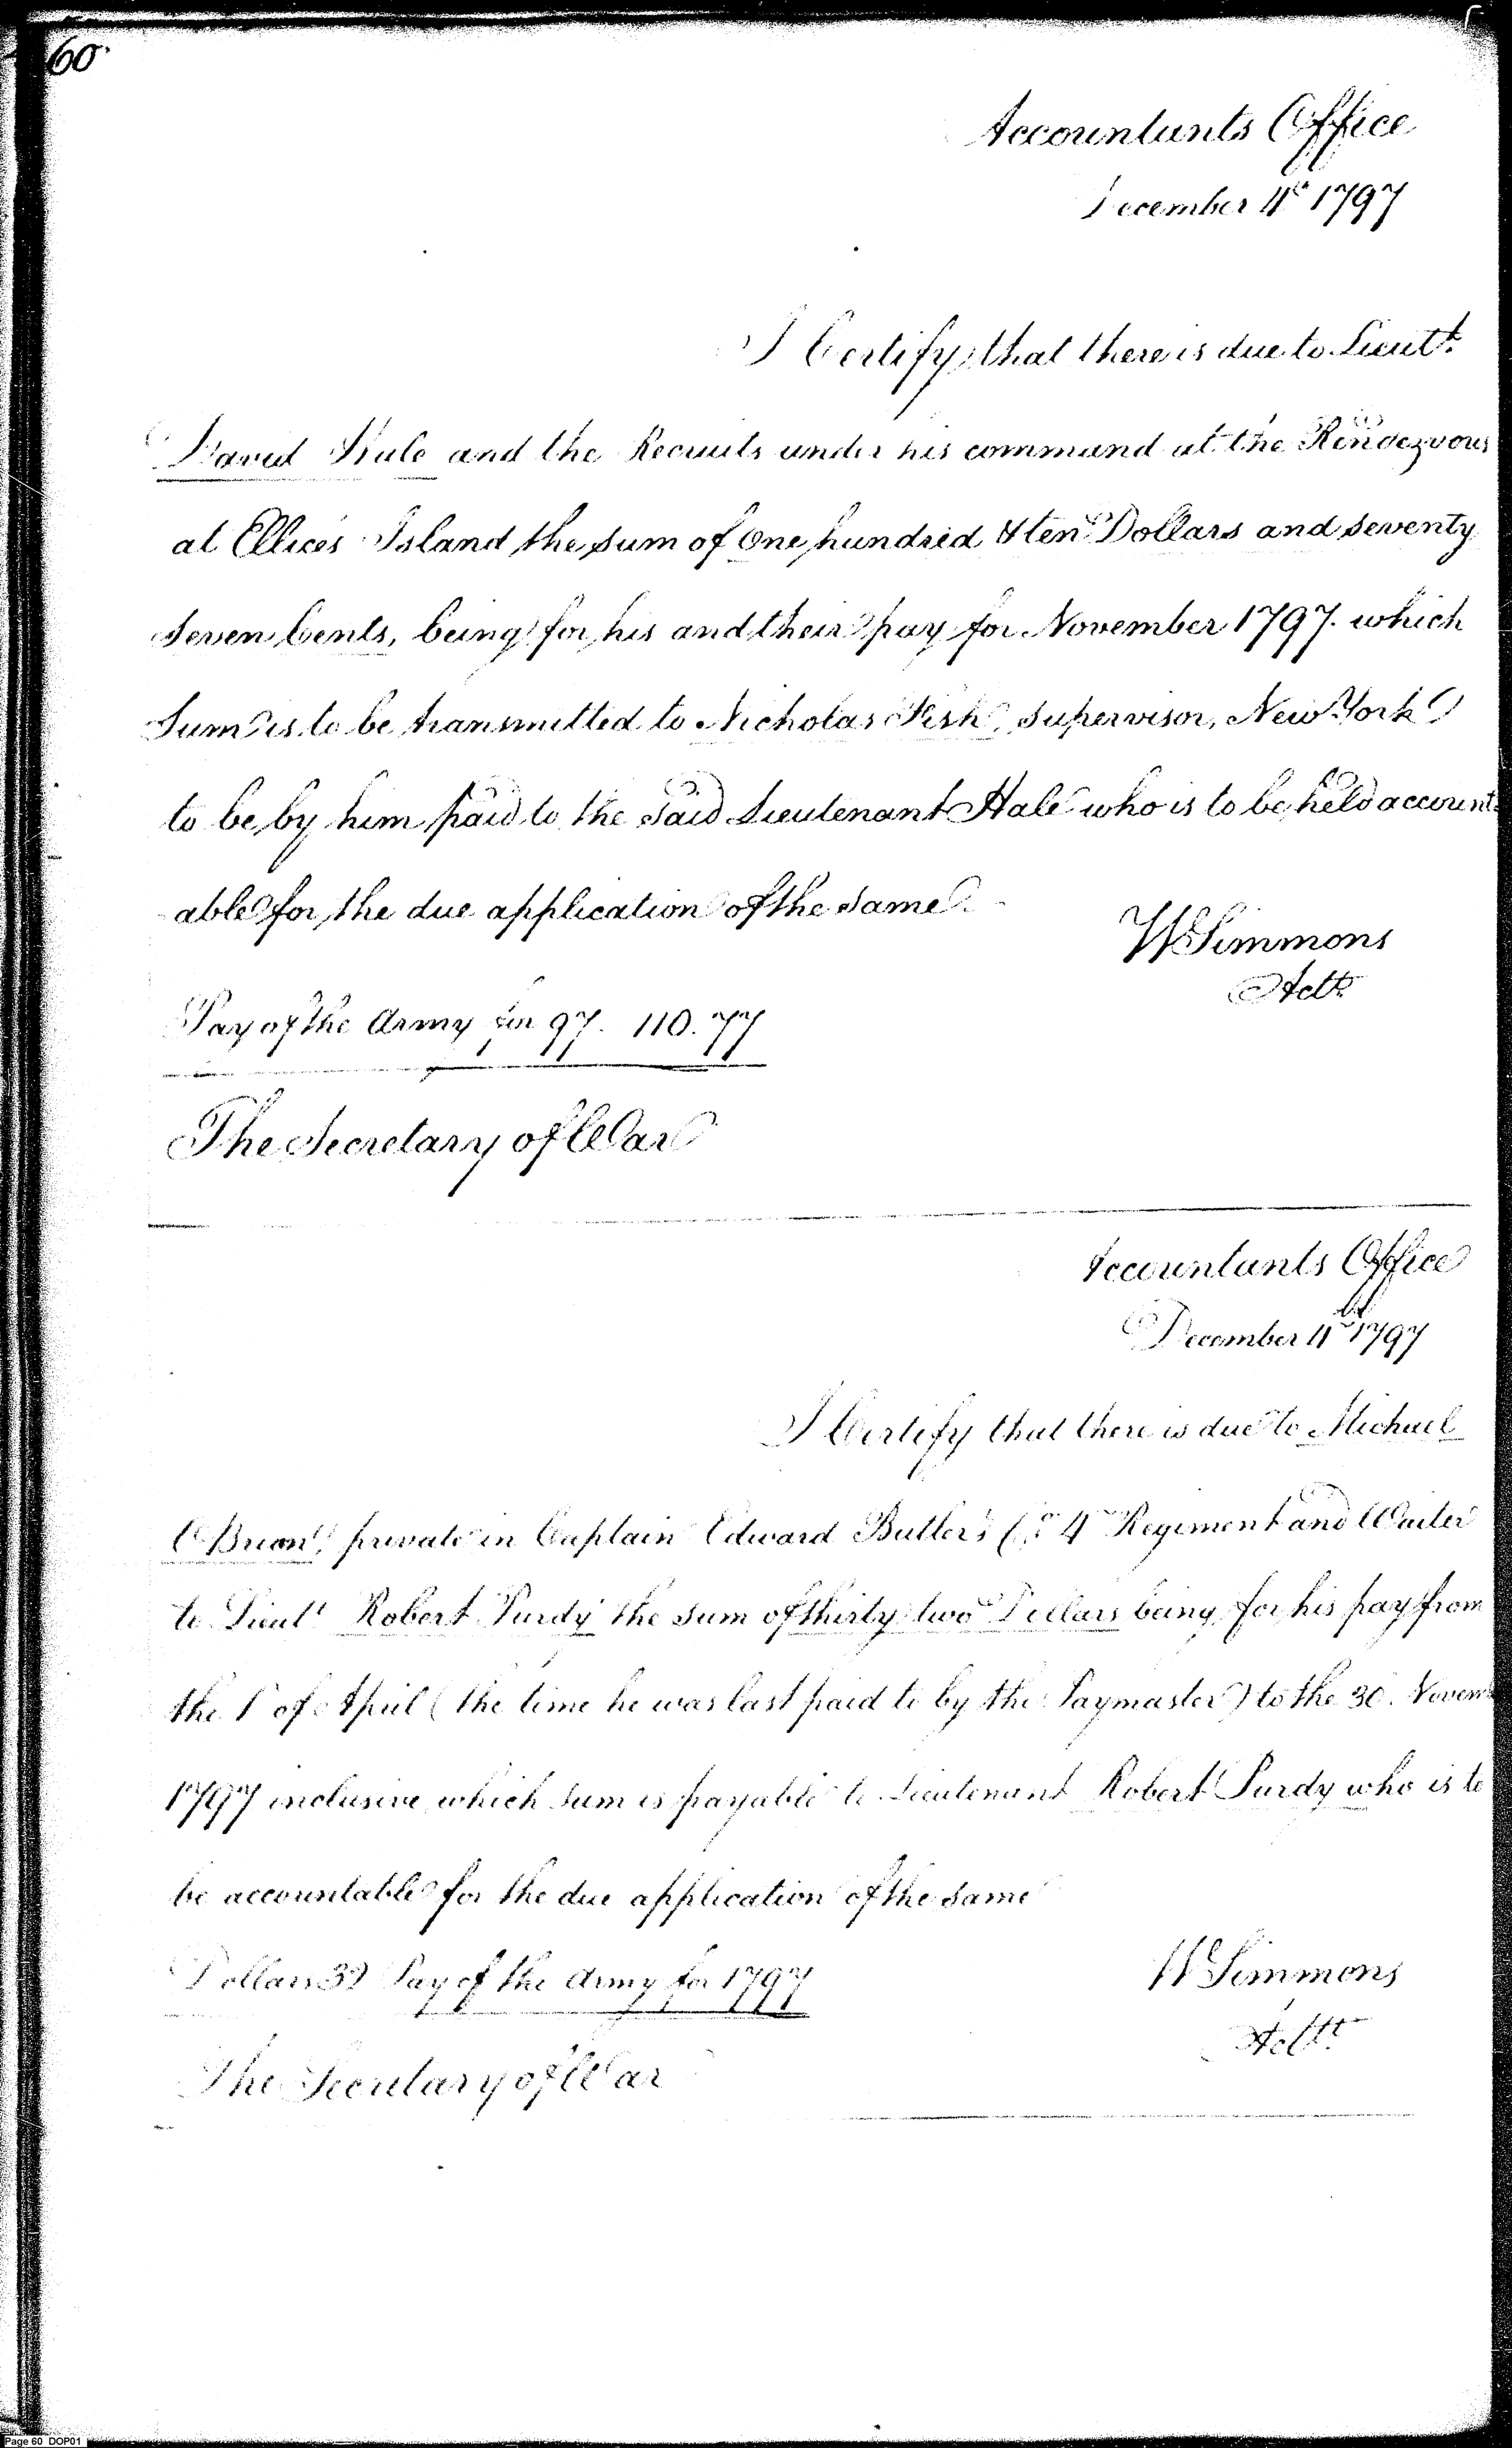 60.
Accountants Office
December 4th 1797
I Certify that there is due to Lieutt.
David Hale and the Recruits under his command at the Rendezvous
at Ellices Island the sum of One hundred & ten Dollars and seventy
Seven Cents, being for his and their pay for November 1797. which
Sum is to be transmitted to Nicholas Fish, supervisor, New York
to be by him paid to the said Lieutenant Hale who is to be held account
able for the due application of the same.
W Simmons
Actt.
Pay of the Army for 97. 110.77
The Secretary of War
Accountants Office
December 4th 1797
I Certify that there is due to Michael
OBrian, private in Captain Edward Butler's Co. 4th Regiment and Waiter
to Lieut Robert Purdy the sum of thirty two Dollars being for his pay from
the 1 of April (the time he was last paid to by the Paymaster) to the 30. Novem
1797 inclusive which sum is payable to Lieutenant Robert Purdy who is to
be accountable for the due application of the same
Dollars 32 Pay of the Army for 1797
W Simmons
Actt.
The Secretary of War
Page 60 DOP01